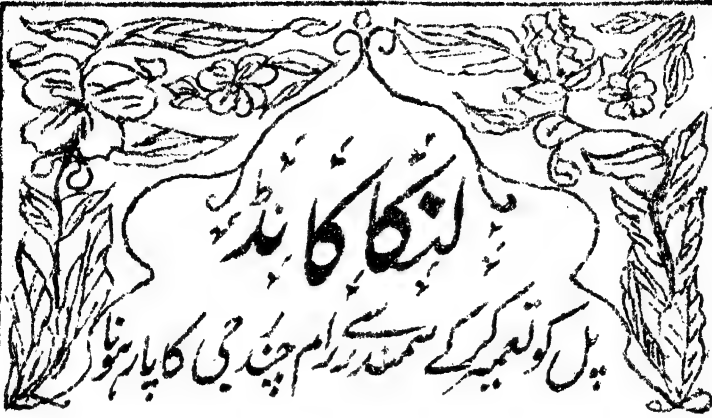 لنکا کانڈ
پل کو تعمیر کر کے سمندر سے رام چندر جی کا پار ہونا